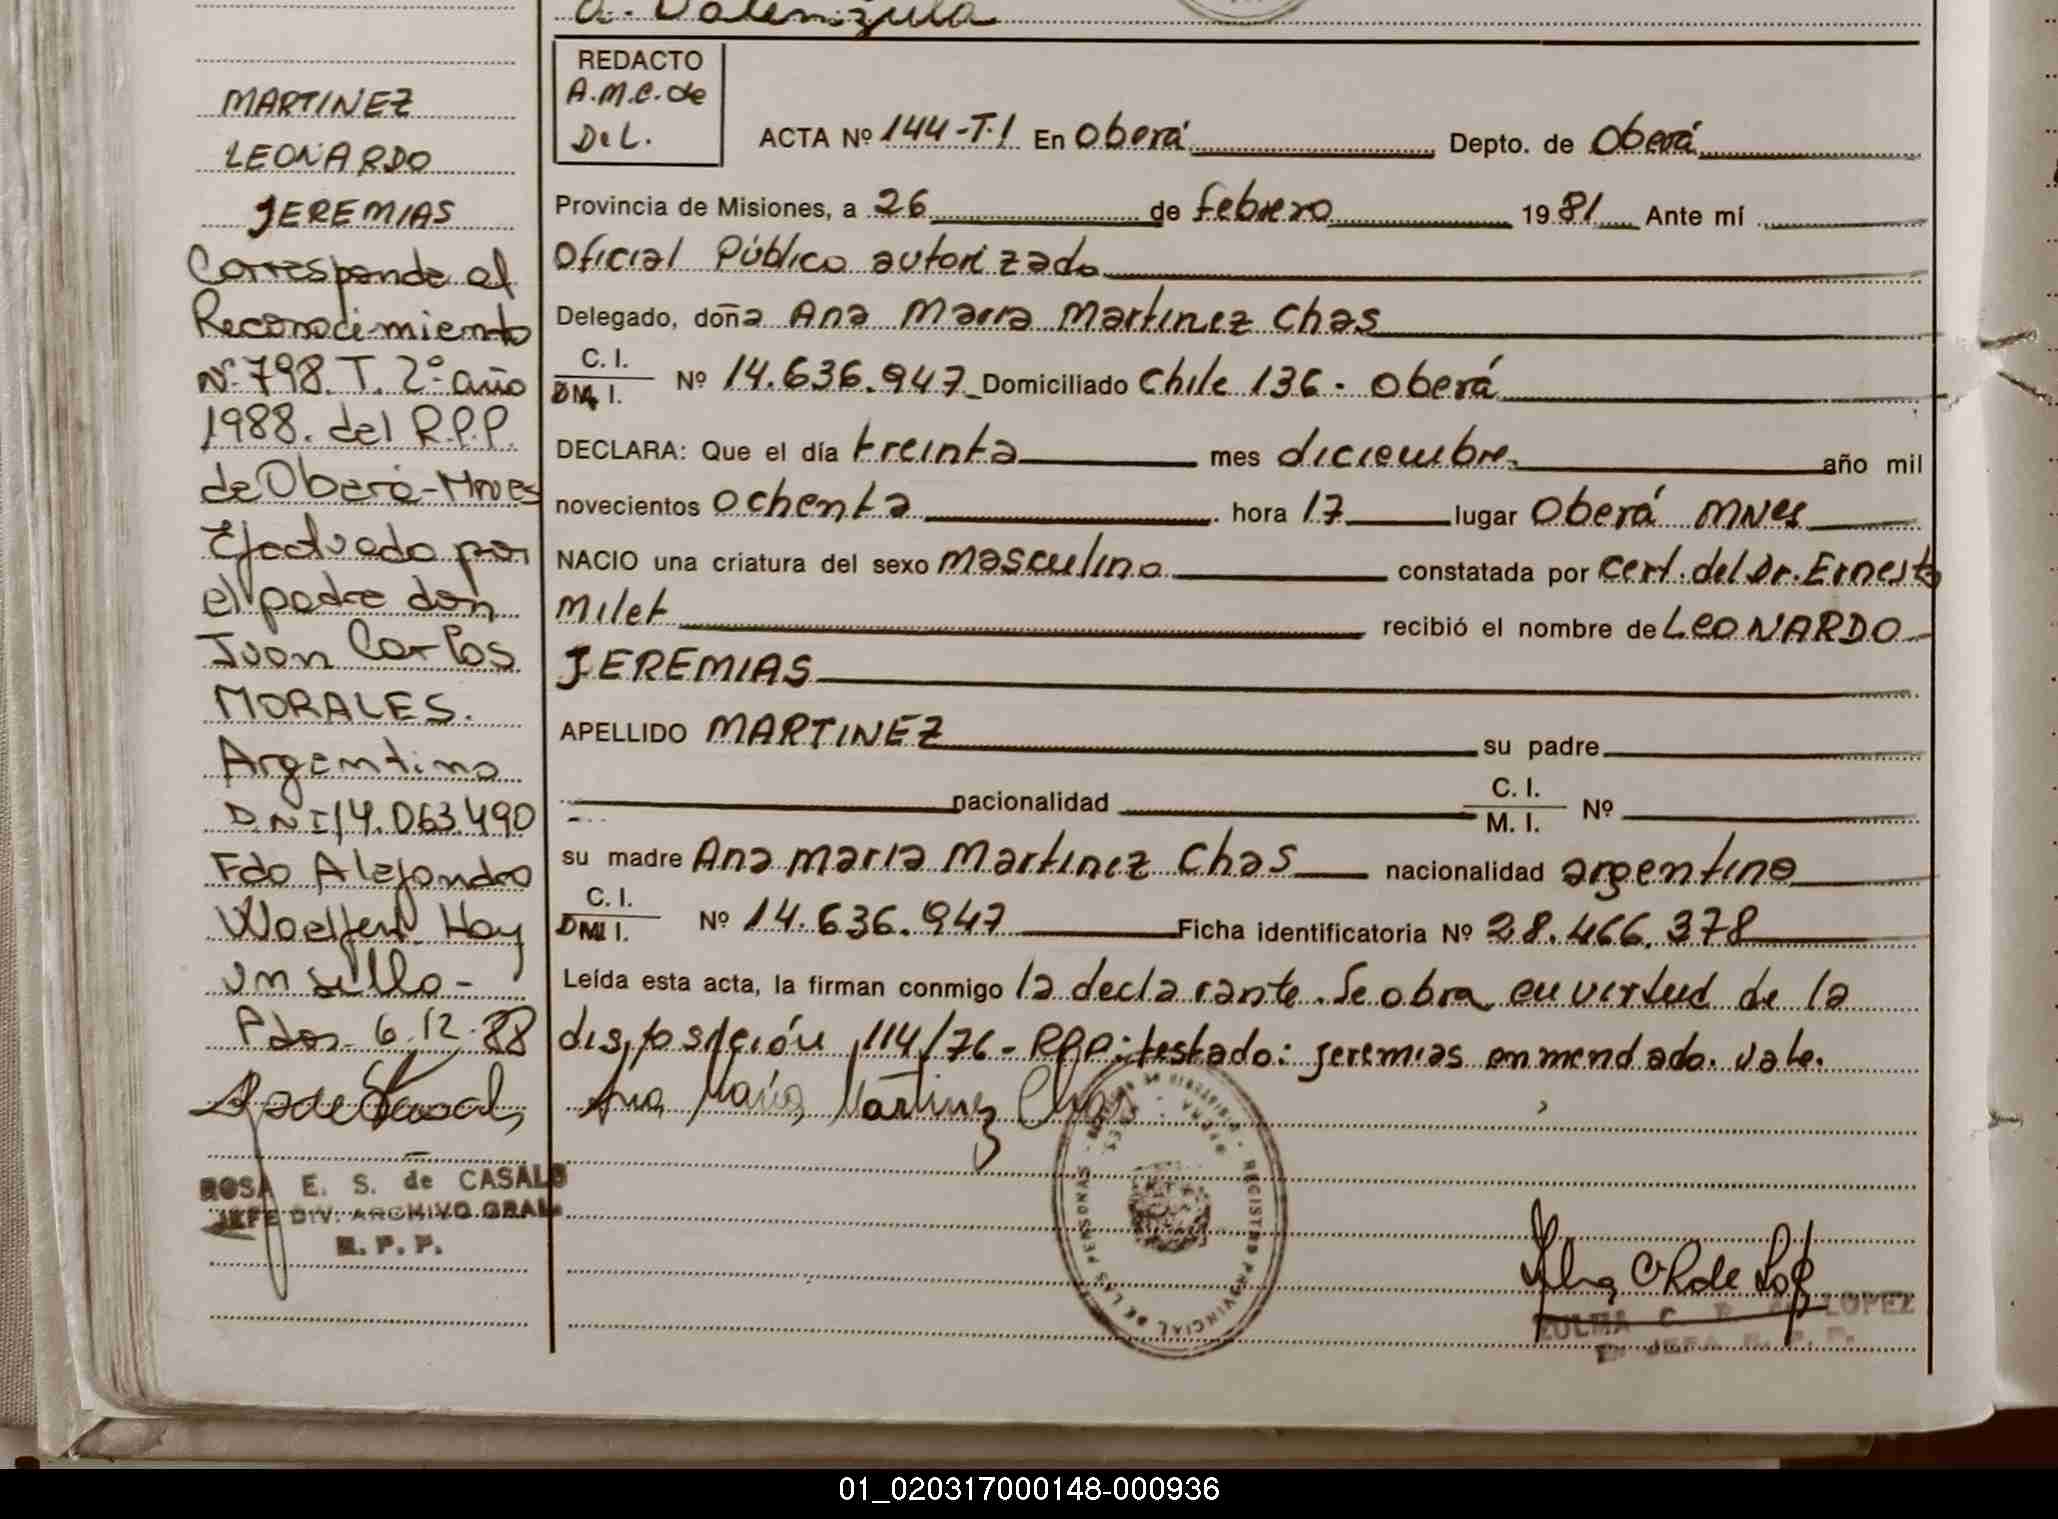 a. Valenzuela
MARTINEZ
LEONARDO
JEREMIAS
Corresponde al
Reconocimiento
Nº 798. T. 2º año
1988. del R.P.P.
de Oberá-Mnes
Efectuado por
el padre don
Juan Carlos
MORALES.
Argentino
DNI 14.063.490
Fdo Alejandro
Hay
un sello-
Pdas. 6.12.88
ROSA E. S. de CASALS
JEFE DIV. ARCHIVO GRAL.
R. P. P.
REDACTO
A.M.C. de
De L.
ACTA Nº 144-T.I En Oberá Depto. de Oberá
Provincia de Misiones, a 26 de febrero 1981 Ante mí
Oficial Público autorizado
Delegado, doña Ana Maria Martinez Chas
C. I.
DM. I. Nº 14.636.947 Domiciliado Chile 136. Oberá
DECLARA: Que el día treinta mes diciembre año mil
novecientos ochenta . hora 17 lugar Oberá Mnes
NACIO una criatura del sexo masculino constatada por cert. del Dr. Ernesto
Milet recibió el nombre de LEONARDO
JEREMIAS
APELLIDO MARTINEZ su padre
nacionalidad C. I.
M. I. Nº
su madre Ana Maria Martinez Chas nacionalidad argentina
C. I.
DM. I. Nº 14.636.947 Ficha identificatoria Nº 28.466.378
Leída esta acta, la firman conmigo la declarante. Se obra en virtud de la
disposición 114/76-RPP: testado: jeremias enmendado. vale.
Ana María Martinez Chas
REGISTRO PROVINCIAL DE LAS PERSONAS
ZULMA C. R. de LOPEZ
JEFA R. P. P.
01_020317000148-000936